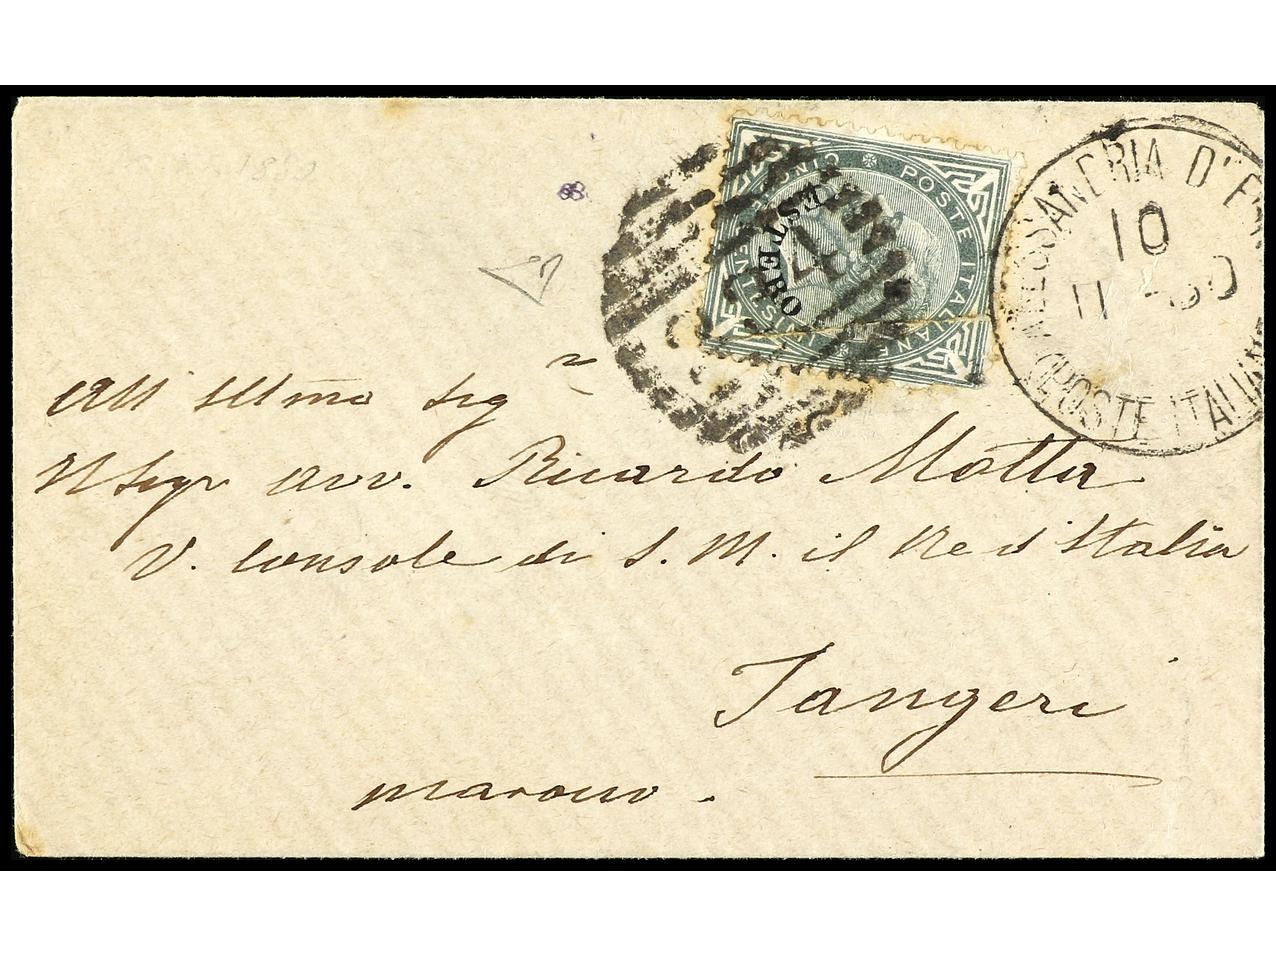 1880
POSTE ITALIANE
CINQUE CENTESIMI
ESTERO
234
ALESSANDRIA D'E
10
11 -80
POSTE ITALIAN
All' Illmo Sigr
N Sigr Avv. Ricardo Motta
V. Console di S. M. il Re d'Italia
Tangeri
marocco.